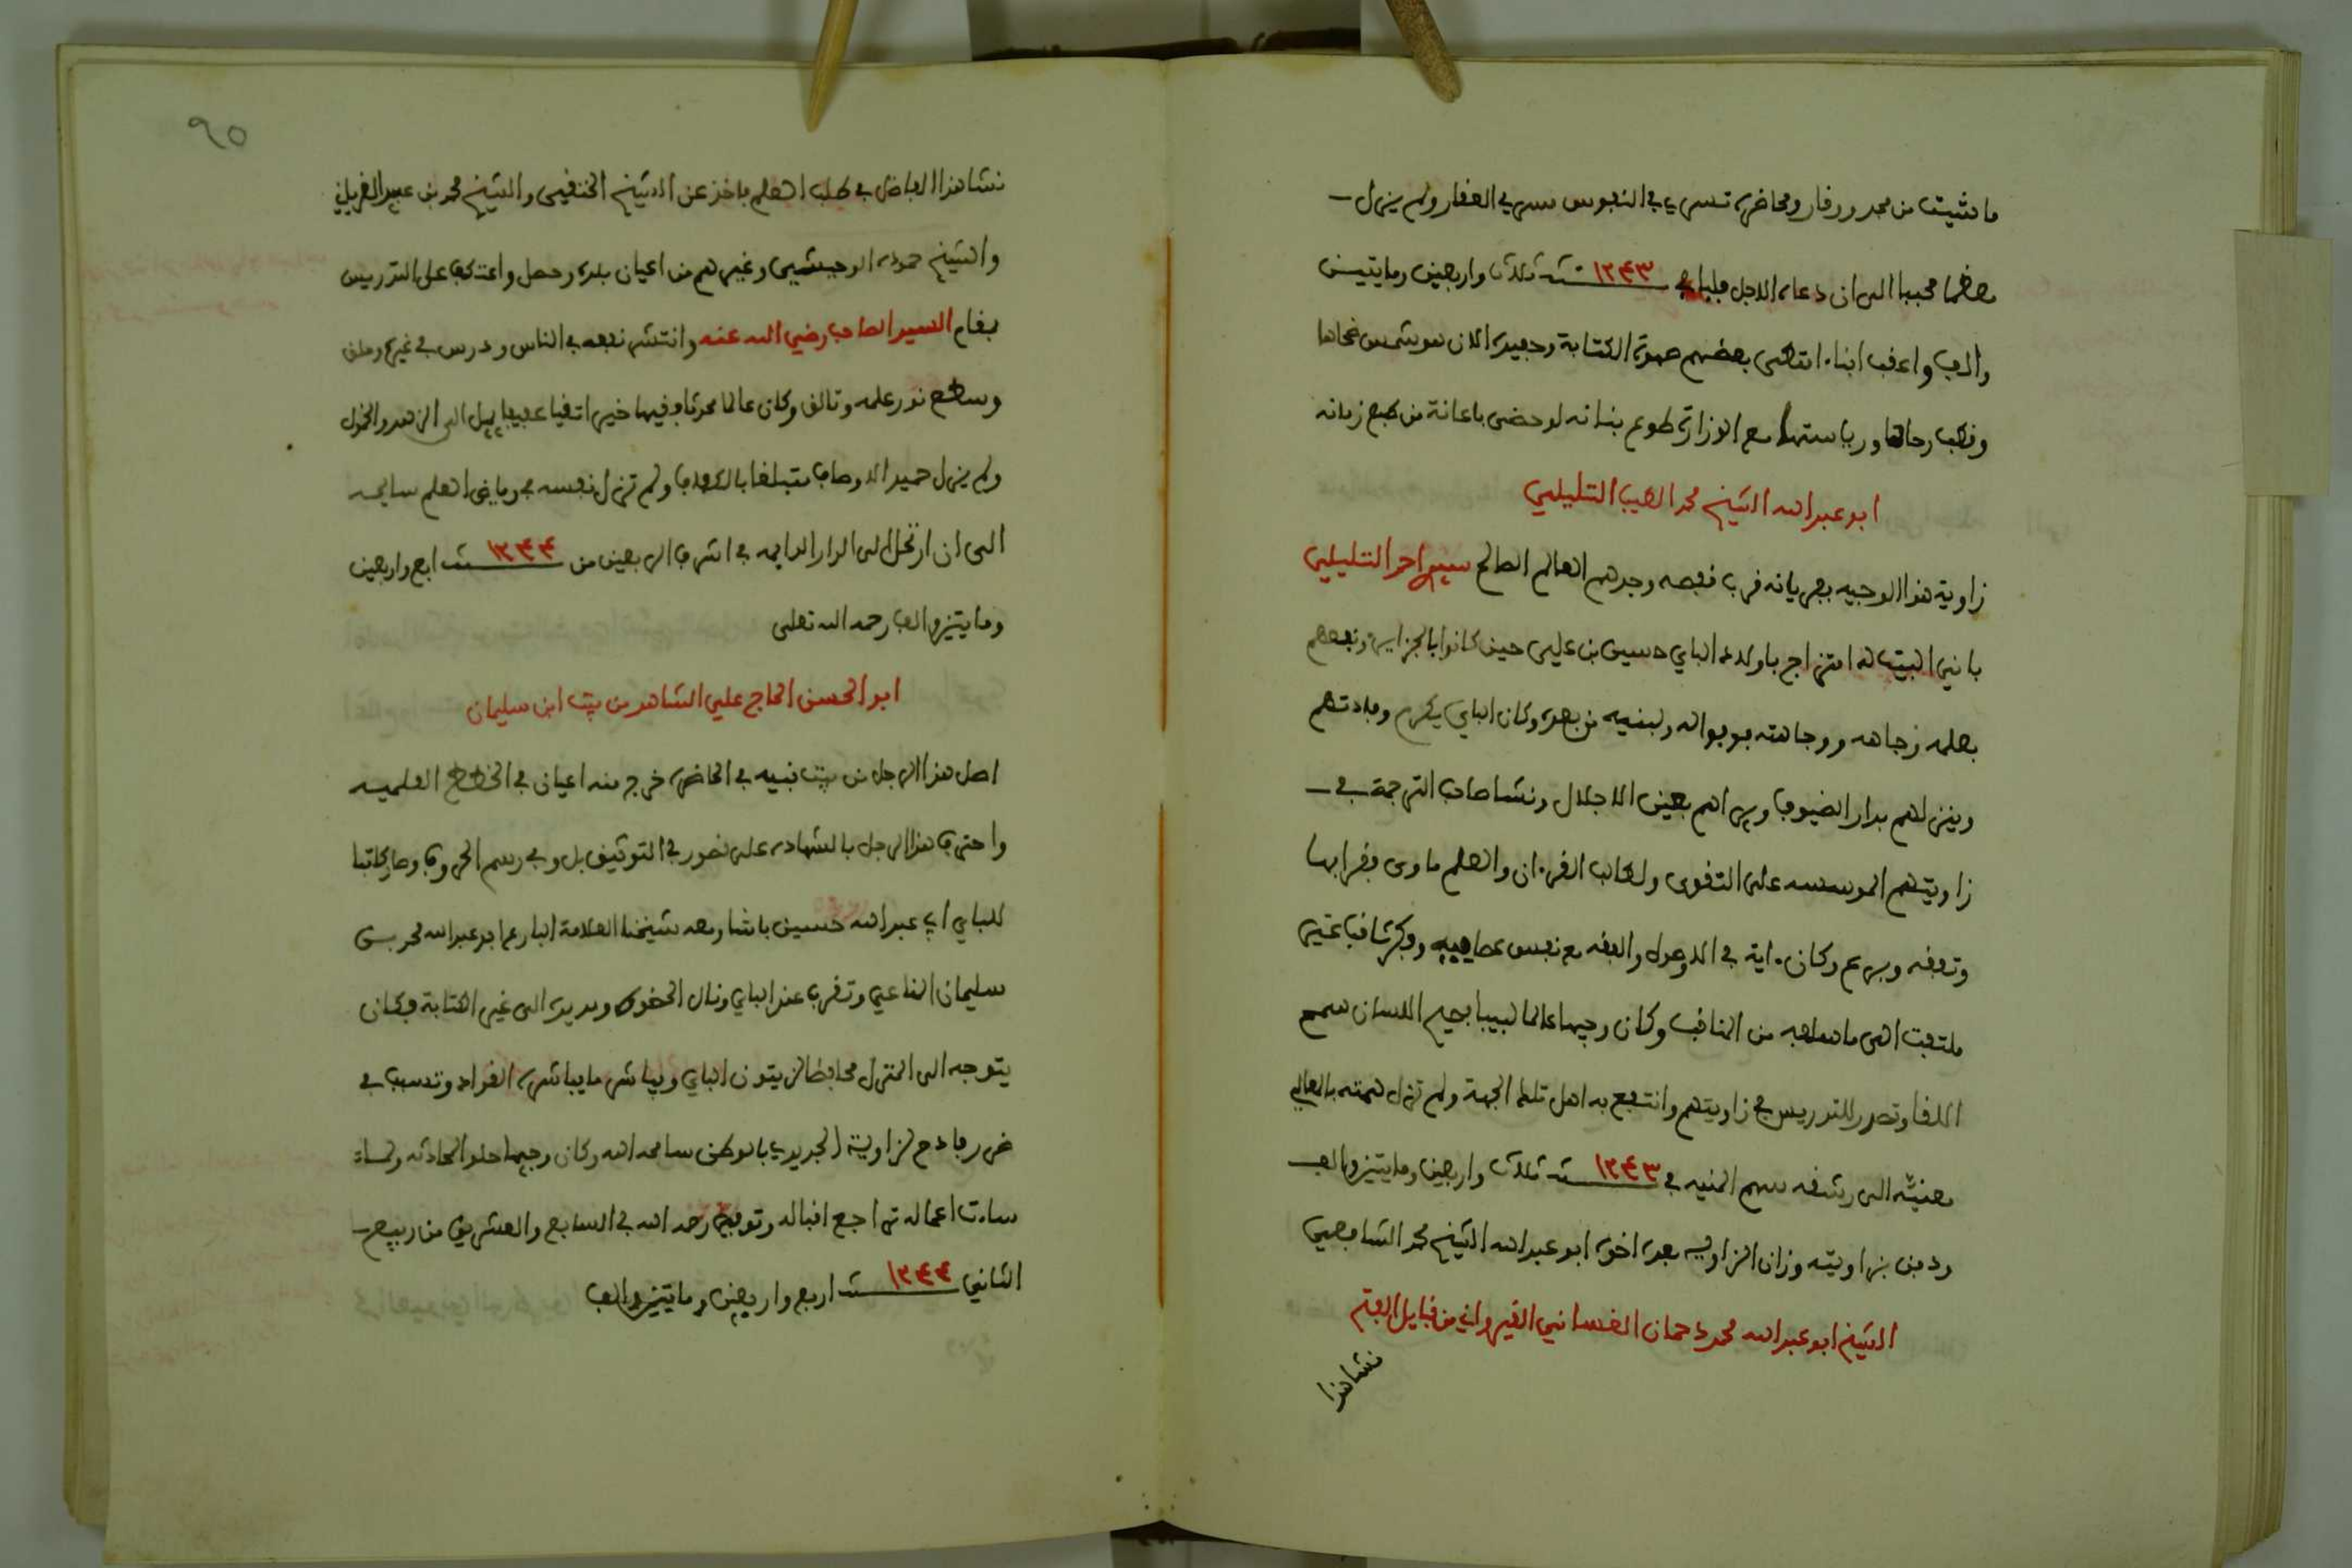 ما شيت من مجد ووقار ومحاضرة تسري في النفوس سري العقار ولم يزل
معظما محببا الى ان دعاه الاجل فلباه في ١٢٤٣ سنة ثلاث واربعين ومايتين
والف واعقب ابناء امتطى بعضهم صهوة الكتابة وحفيده الان هو شمس ضحاها
وقطب رحاها ورياستها مع الوزارة طوع بنانه لو حضى باعانة من طبع زمانه
ابو عبد الله الشيخ محمد الطيب التليلي
زاوية هذا الوجيه بفريانه قرب قفصه وجدهم العالم الصالح سيدي احمد التليلي
باني البيت له امتزاج باولاد الباي حسين بن علي حين كانوا بالجزاير ونفعهم
بعلمه وجاهه ووجاهته فوفوا له ولبنيه من بعده وكان الباي يكرم وفادتهم
وينزلهم بدار الضيوف ويراهم بعين الاجلال ونشا صاحب الترجمة في
زاويتهم الموسسه على التقوى ولطالب القرءان والعلم ماوى فقرا بها
وتفقه وبرع وكان ءاية في الاصول والفقه مع نفس عصاميه وفكرة ثاقبة غير
ملتفت الى ما لسلفه من المناقب وكان وجيها عالما لبيبا فصيح اللسان سمح
اللقا وتصدر للتدريس في زاويتهم وانتفع به اهل تلك الجهة ولم تزل همته بالمعالي
معنيه الى رشقه سهم المنيه في ١٢٤٣ سنة ثلاث واربعين ومايتين والف
ودفن بزاويته وزان الزاويه بعده اخوه ابو عبد الله الشيخ محمد الشافعي
الشيخ ابو عبد الله محمد دحمان الغساني القيرواني من قبايل الفتح
نشا هذا
٩٥
نشا هذا الفاضل في طلب العلم فاخذ عن الشيخ الخنقي والشيخ محمد بن عبيد الغرياني
والشيخ حموده الوحيشي وغيرهم من اعيان بلده وحصل واعتكف على التدريس
بمقام السيد الصاحب رضي الله عنه وانتشر نفعه في الناس ودرس في غيره
وسطع نور علمه وتالق وكان عالما محدثا فقيها خيرا تقيا عفيفا يميل الى الزهد والخمول
ولم يزل حميد الاوصاف متبلغا بالكفاف ولم تزل نفسه في رياض العلم سايحه
الى ان ارتحل الى الدار الدايمه في اشرف الربيعين من ١٢٤٤ سنة اربع واربعين
ومايتين والف رحمه الله تعلى
ابو الحسن الحاج علي الشاهد من بيت ابن سليمان
اصل هذا الرجل من بيت نبيه في الحاضره خرج منه اعيان في الخطط العلميه
واحترف هذا الرجل بالشهاده على قصور في التوثيق بل وفي رسم الحروف وصار كاتبا
للباي ابي عبد الله حسين باشا ومعه شيخنا العلامة البارع ابو عبد الله محمد بن
سليمان المناعي وتقرب عند الباي ونال الحضوه ومد يده الى غير الكتابة فكان
يتوجه الى المنزل محافظا لزيتون الباي ويباشر ما يباشره القواد وتسبب في
ضرر فادح لزاوية الجديدي بالوطن سامحه الله وكان وجيها حلو المحادثه ولما
ساءت اعماله تراجع اقباله وتوفي رحمه الله في السابع والعشرين من ربيع
الثاني ١٢٤٤ سنة اربع واربعين ومايتين والف